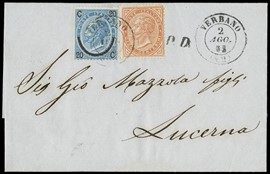 C 20 20 C
VERBANO
2
AGO.
P.D.
Sig Gio Mazzola figli
Lucerna